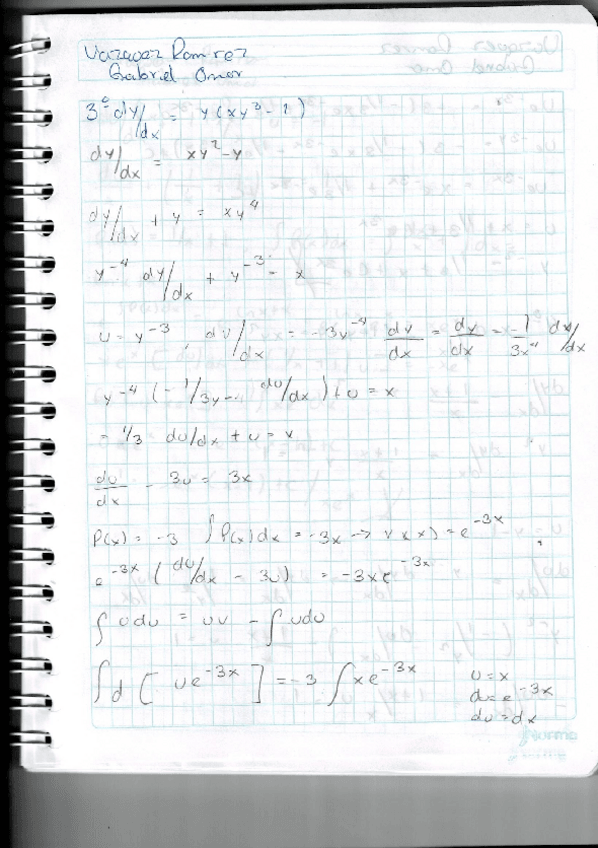 Vazquez Ramirez
Gabriel Omar
3º dy/dx = y(xy³ - 1)
dy/dx = xy² - y
dy/dx + y = xy⁴
y⁻⁴ dy/dx + y⁻³ = x
u = y⁻³, du/dx = -3y⁻⁴ dy/dx = dy/dx = -1/3x⁻⁴ dy/dx
y⁻⁴ (-1/3y⁻⁴ du/dx) + u = x
= 1/3 du/dx + u = x
du/dx - 3u = 3x
P(x) = -3 ∫P(x)dx = -3x → v(x) = e⁻³ˣ
e⁻³ˣ (du/dx - 3u) = -3xe⁻³ˣ
∫udu = uv - ∫udu
∫d[ue⁻³ˣ] = -3∫xe⁻³ˣ
u = x
dx = e⁻³ˣ
du = dx
Norma